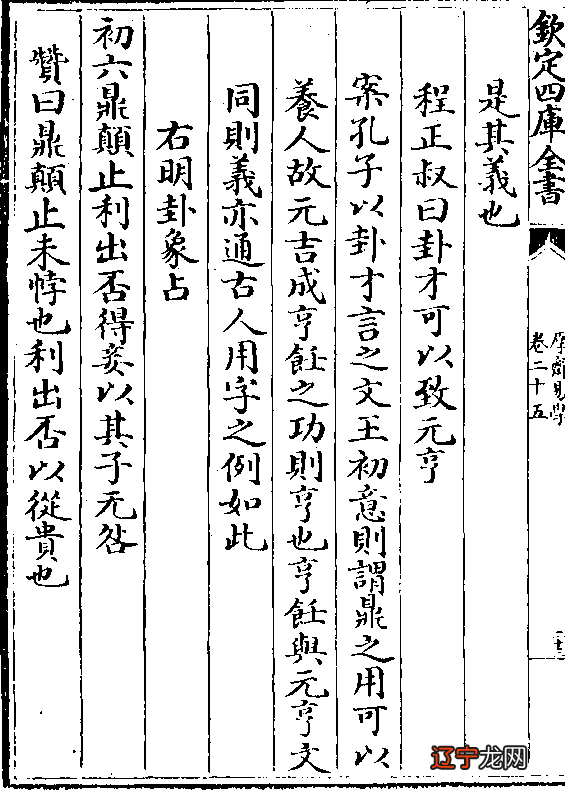 欽定四庫全書
厚齋易學
卷二十五
是其義也
程正叔曰卦才可以致元亨
案孔子以卦才言之文王初意則謂鼎之用可以
養人故元吉成亨飪之功則亨也亨飪與元亨文
同則義亦通古人用字之例如此
右明卦象占
初六鼎顛止利出否得妾以其子无咎
贊曰鼎顛止未悖也利出否以從貴也
辽宁龙网